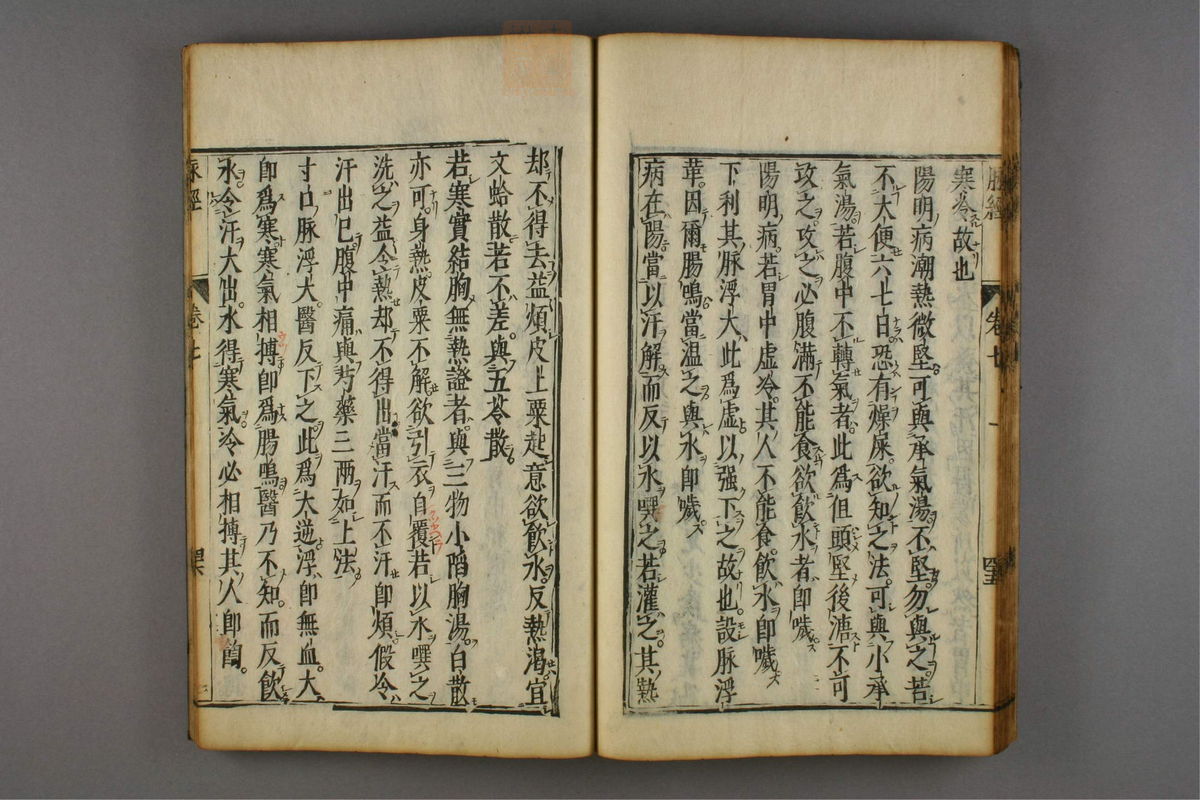 寒冷故也
陽明病潮熱微堅可與承氣湯不堅勿與之若
不大便六七日恐有燥屎欲知之法可與小承
氣湯若腹中不轉氣者此爲但頭堅後溏不可
攻之攻之必腹滿不能食欲飲水者即噦
陽明病若胃中虛冷其人不能食飲水即噦
下利其脉浮大此爲虛以强下之故也設脉浮
革因爾腸鳴當温之與水即噦
病在陽當以汗解而反以水噀之若灌之其熱
却不得去益煩皮上粟起意欲飲水反熱渴宜
文蛤散若不差與五苓散
若寒實結胸無熱證者與三物小陷胸湯白散
亦可身熱皮粟不解欲引衣自覆若以水噀之
洗之益令熱却不得出當汗而不汗即煩假令
汗出已腹中痛與芍藥三兩如上法
寸口脉浮大醫反下之此爲大逆浮即無血大
即爲寒寒氣相搏即爲腸鳴醫乃不知而反飲
水令汗大出水得寒氣冷必相搏其人即䭇
脉經
卷七